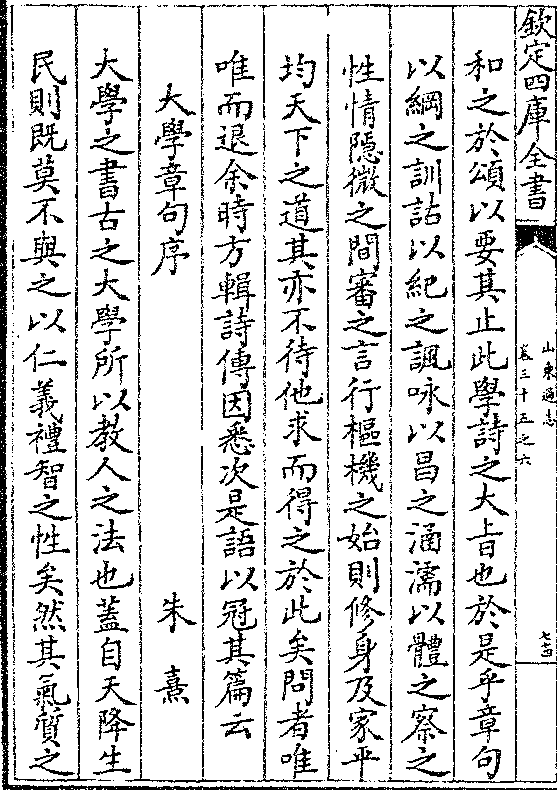 欽定四庫全書
山東通志
卷三十五之六
和之於頌以要其止此學詩之大㫖也於是乎章句
以綱之訓詁以紀之諷咏以昌之涵濡以體之察之
性情隱微之間審之言行樞機之始則修身及家平
均天下之道其亦不待他求而得之於此矣問者唯
唯而退余時方輯詩傳因悉次是語以冠其篇云
大學章句序 朱熹
大學之書古之大學所以教人之法也蓋自天降生
民則既莫不與之以仁義禮智之性矣然其氣質之